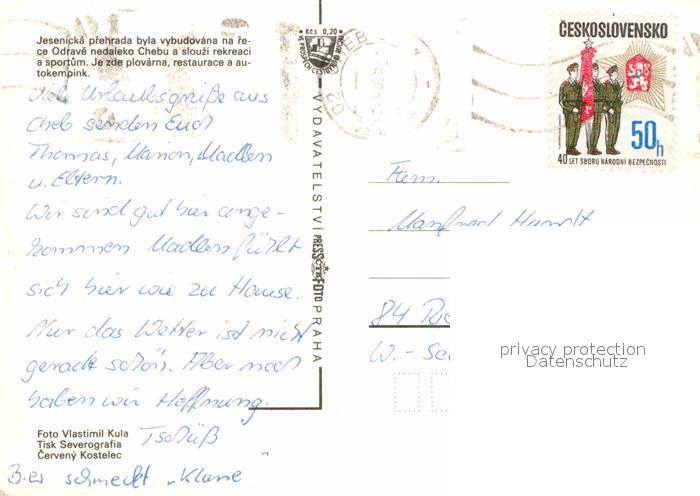 Jesenická přehrada byla vybudována na ře-
ce Odravě nedaleko Chebu a slouží rekreaci
a sportům. Je zde plovárna, restaurace a au-
tokempink.
Viele Urlaubsgrüße aus
Cheb senden Euch
Thomas, Marion, Madlen
u. Eltern.
Wir sind gut hier ange-
kommen. Madlen fühlt
sich hier wie zu Hause.
Nur das Wetter ist nicht
gerade schön. Aber noch
haben wir Hoffnung.
Tschüß
Bier schmeckt „Klasse"
Foto Vlastimil Kula
Tisk Severografia
Červený Kostelec
Kčs 0,20
VYDAVATELSTVÍ PRESSFOTO PRAHA
ČESKOSLOVENSKO
50h
40 LET SBORU NÁRODNÍ BEZPEČNOSTI
Fam.
Manfred
84
W.-
privacy protection
Datenschutz